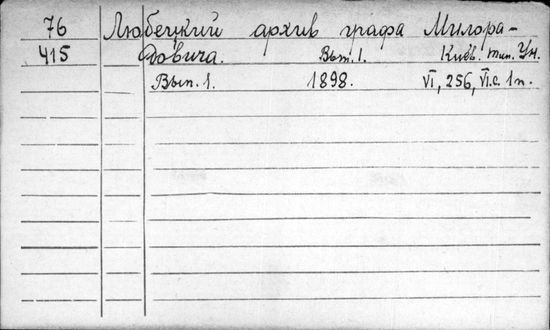 76 Любецкий архив графа Милора-
415 довича. Вып. 1. Киев. тип. Ун.
Вып. 1. 1898. VI, 256, VI с. 1 п.